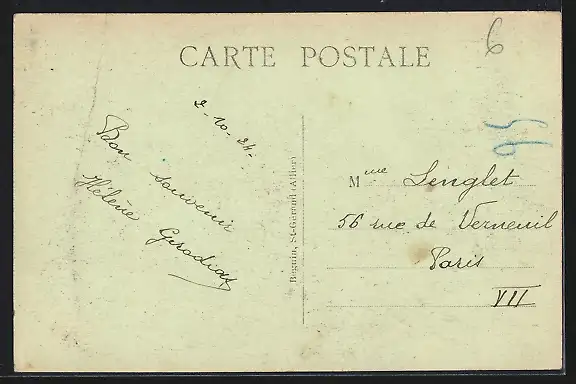 CARTE POSTALE
6
2-10-24-
Bon souvenir
Hélène
Beguin, St-Gérand (Allier)
Mme Lenglet
56 rue de Verneuil
Paris
VII